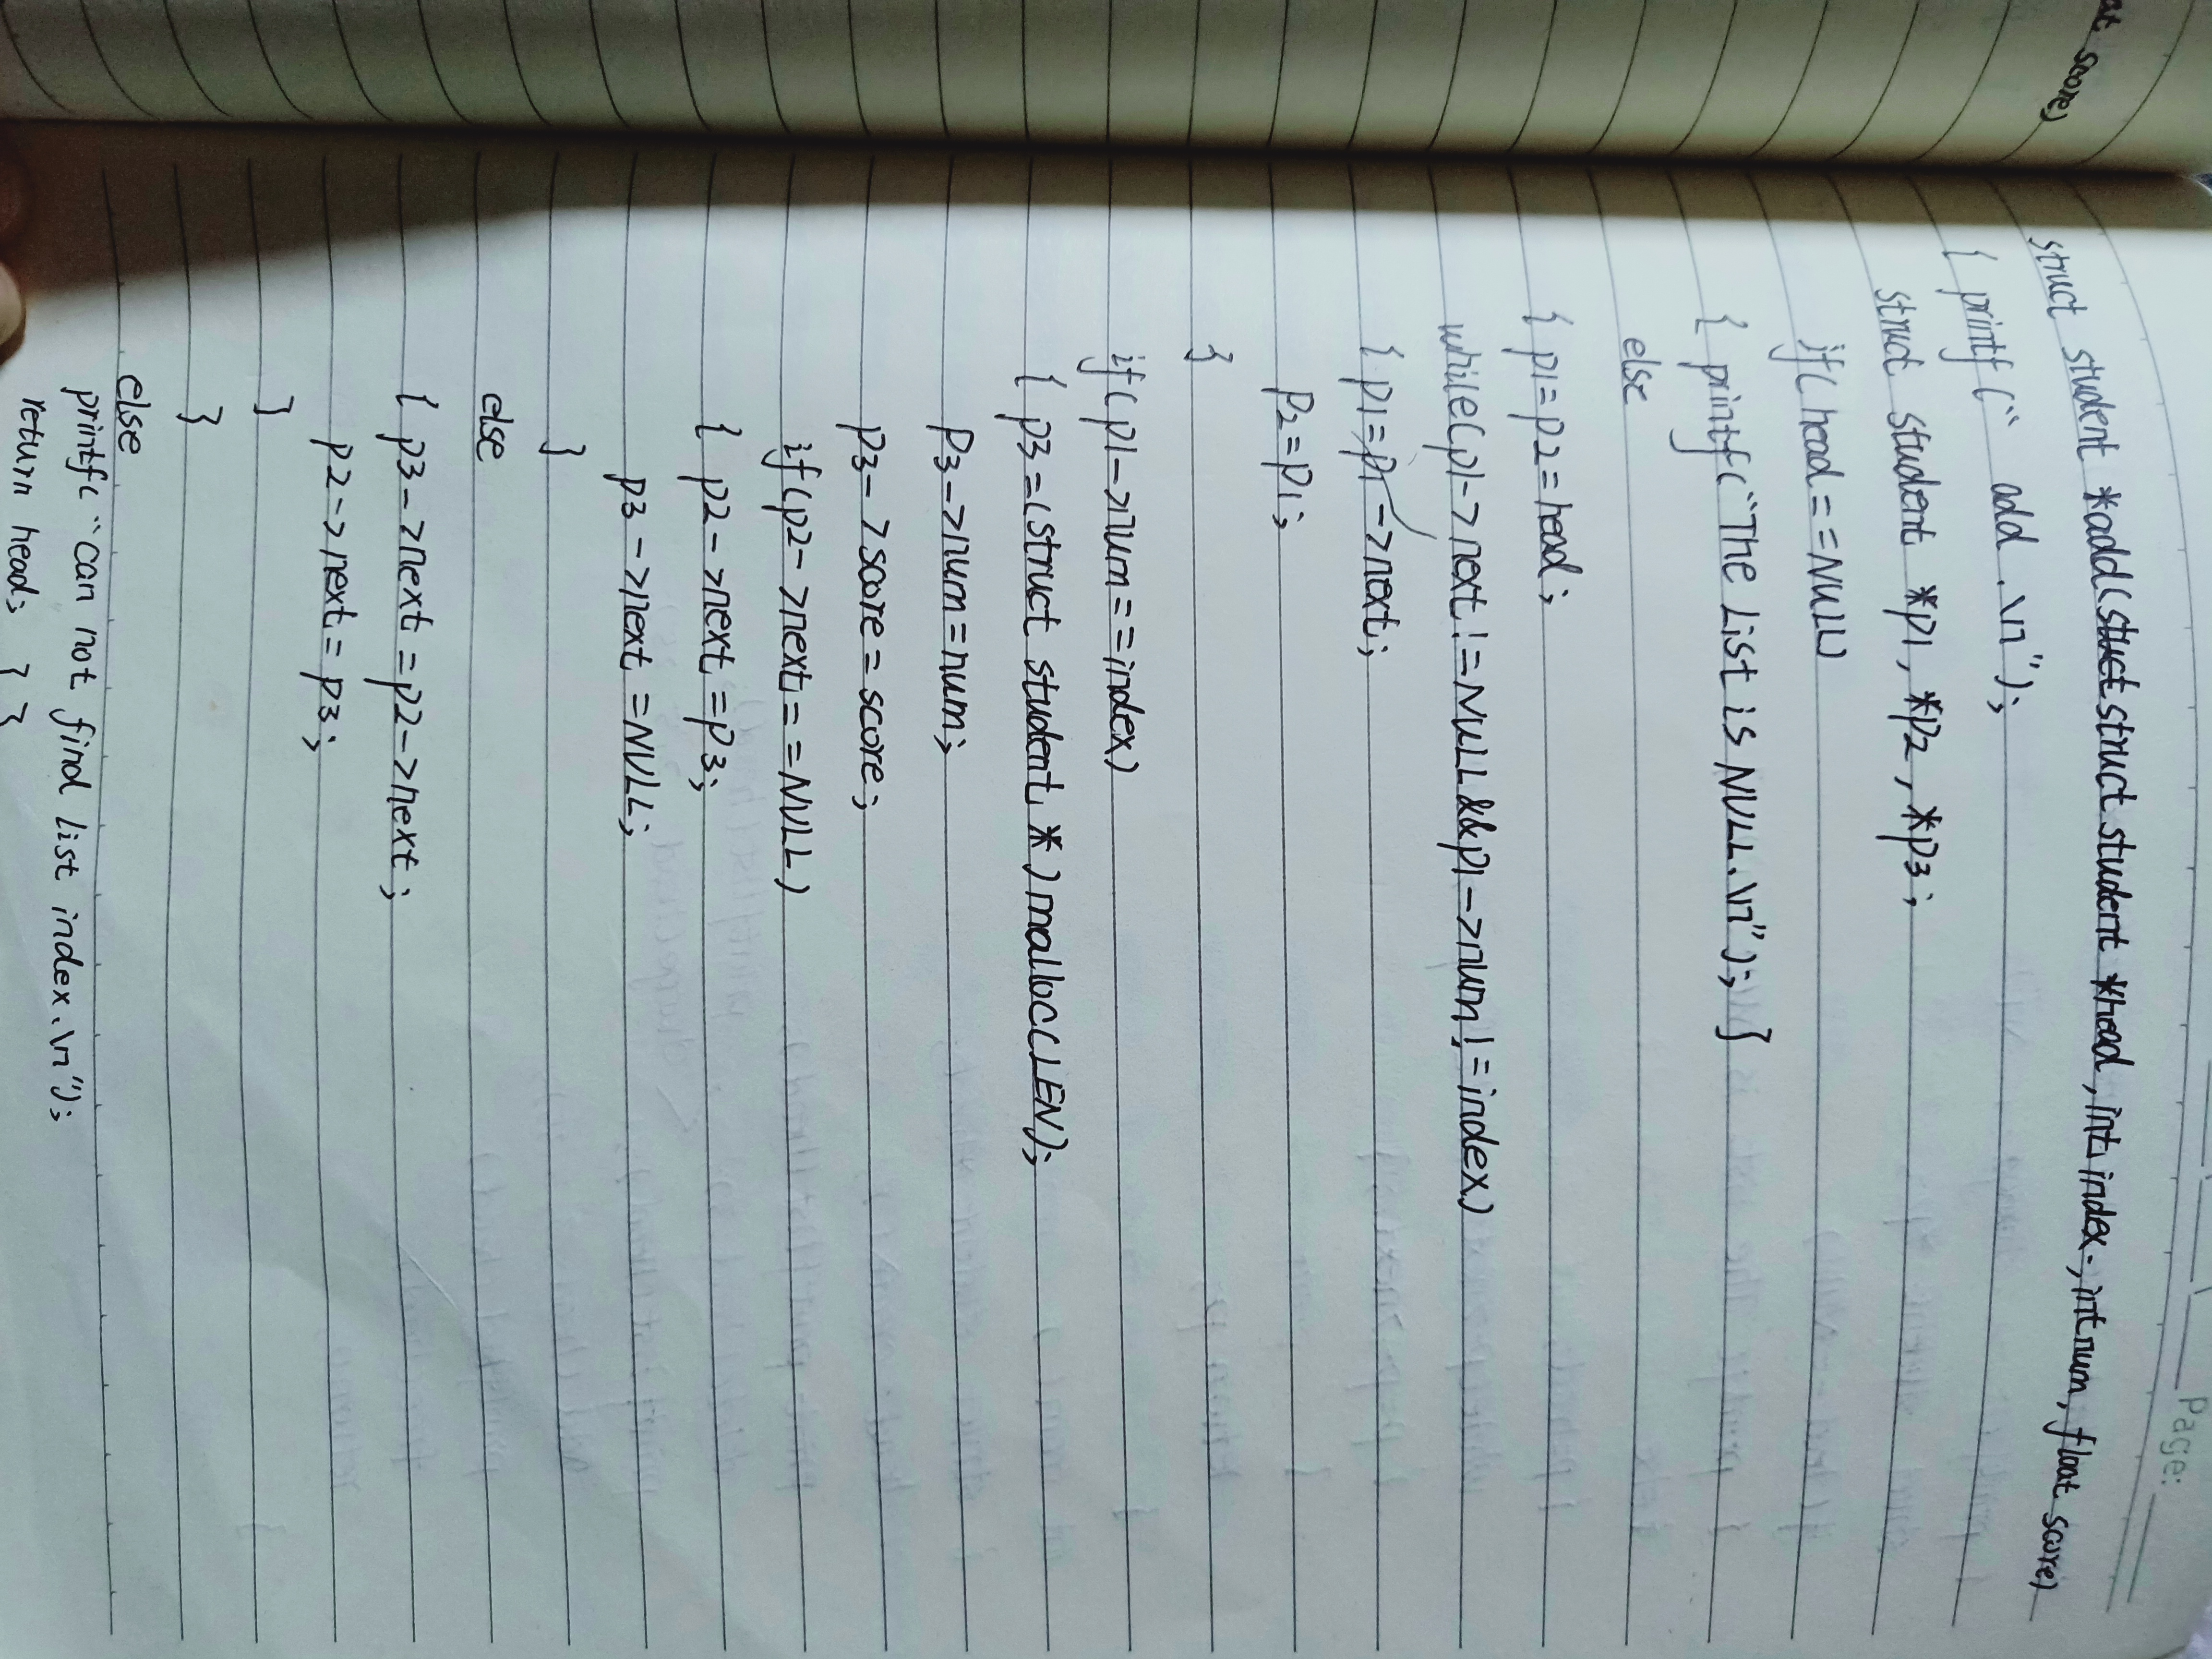 at score)
Page:
struct student *add(stuct struct student *head, int index, int num, float score)
{ printf(" add .\n");
struct student *p1, *p2, *p3;
if(head==NULL)
{ printf("The List is NULL.\n"); }
else
{ p1=p2=head;
while(p1->next!=NULL&&p1->num!=index)
{ p1=p1->next;
p2=p1;
}
if(p1->num==index)
{ p3=(struct student *)malloc(LEN);
p3->num=num;
p3->score=score;
if(p2->next==NULL)
{ p2->next=p3;
p3->next=NULL;
}
else
{ p3->next=p2->next;
p2->next=p3;
}
}
else
printf("can not find list index.\n");
return head; } }